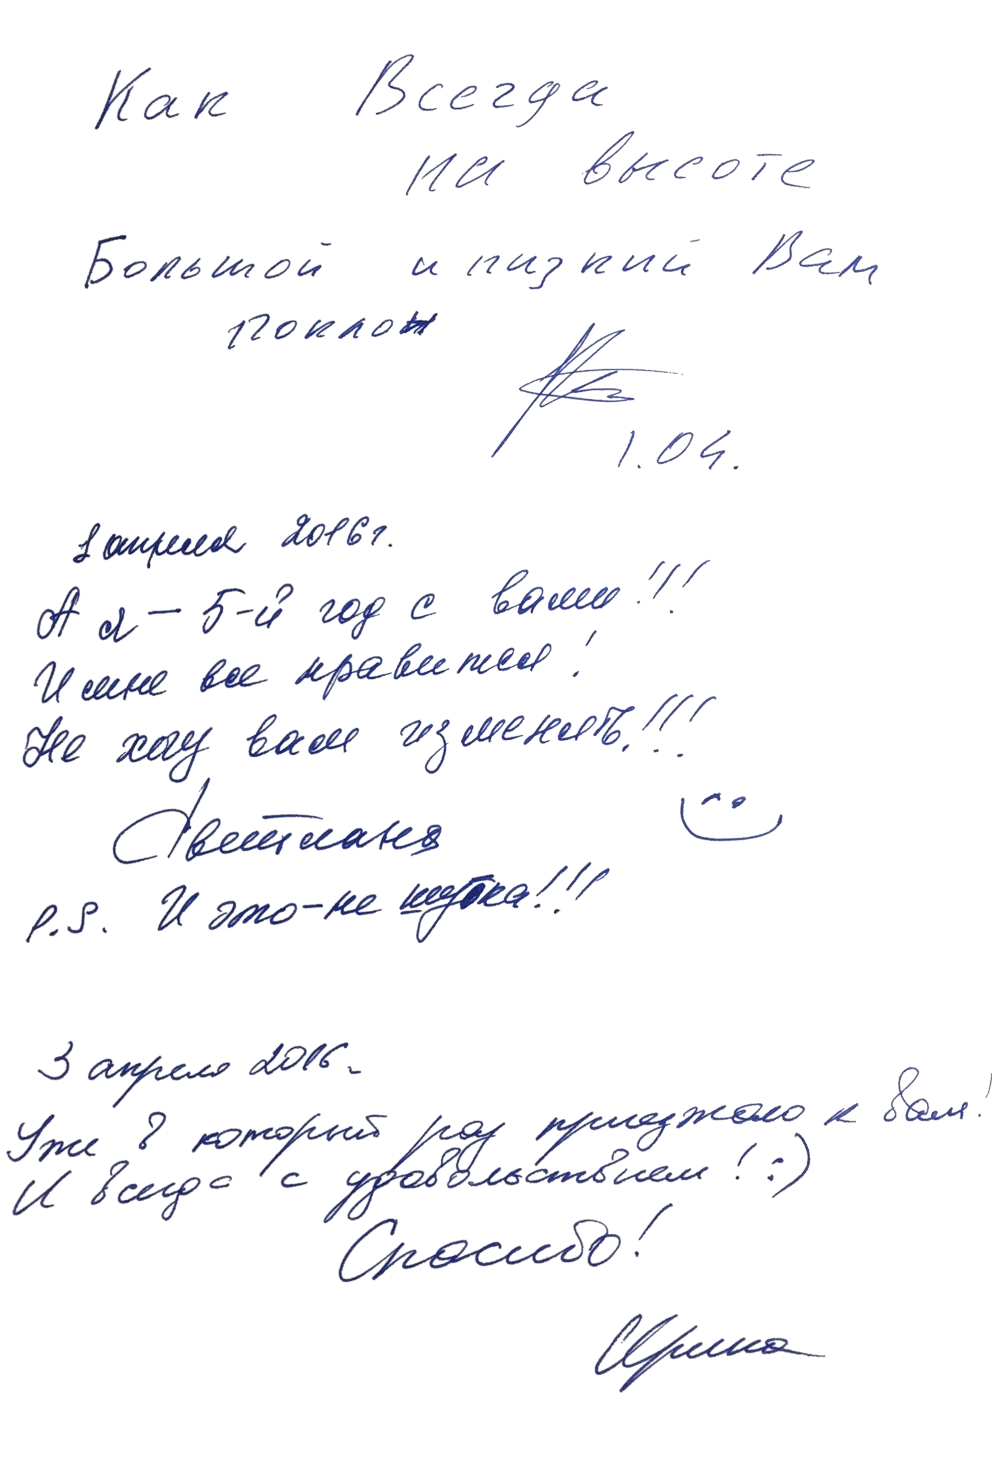 Как Всегда
на высоте
Большой и низкий Вам
поклон
1.04.
1 апреля 2016 г.
А я – 5-й год с вами!!!
И мне все нравится!
Не хочу вам изменять!!!
Светлана
P.S. И это – не шутка!!!
3 апреля 2016.
Уже в который раз приезжаю к Вам!
И всегда с удовольствием! :)
Спасибо!
Ирина